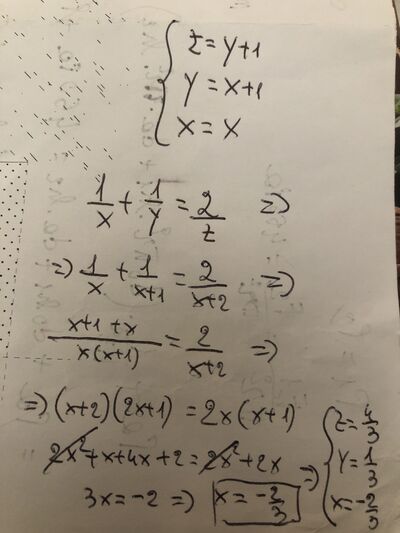 z = y+1
y = x+1
x = x
1/x + 1/y = 2/z =>
=> 1/x + 1/x+1 = 2/x+2 =>
x+1+x/x(x+1) = 2/x+2 =>
=> (x+2)(2x+1) = 2x(x+1)
2x²+x+4x+2 = 2x²+2x
3x = -2 => x = -2/3 =>
z = 4/3
y = 1/3
x = -2/3